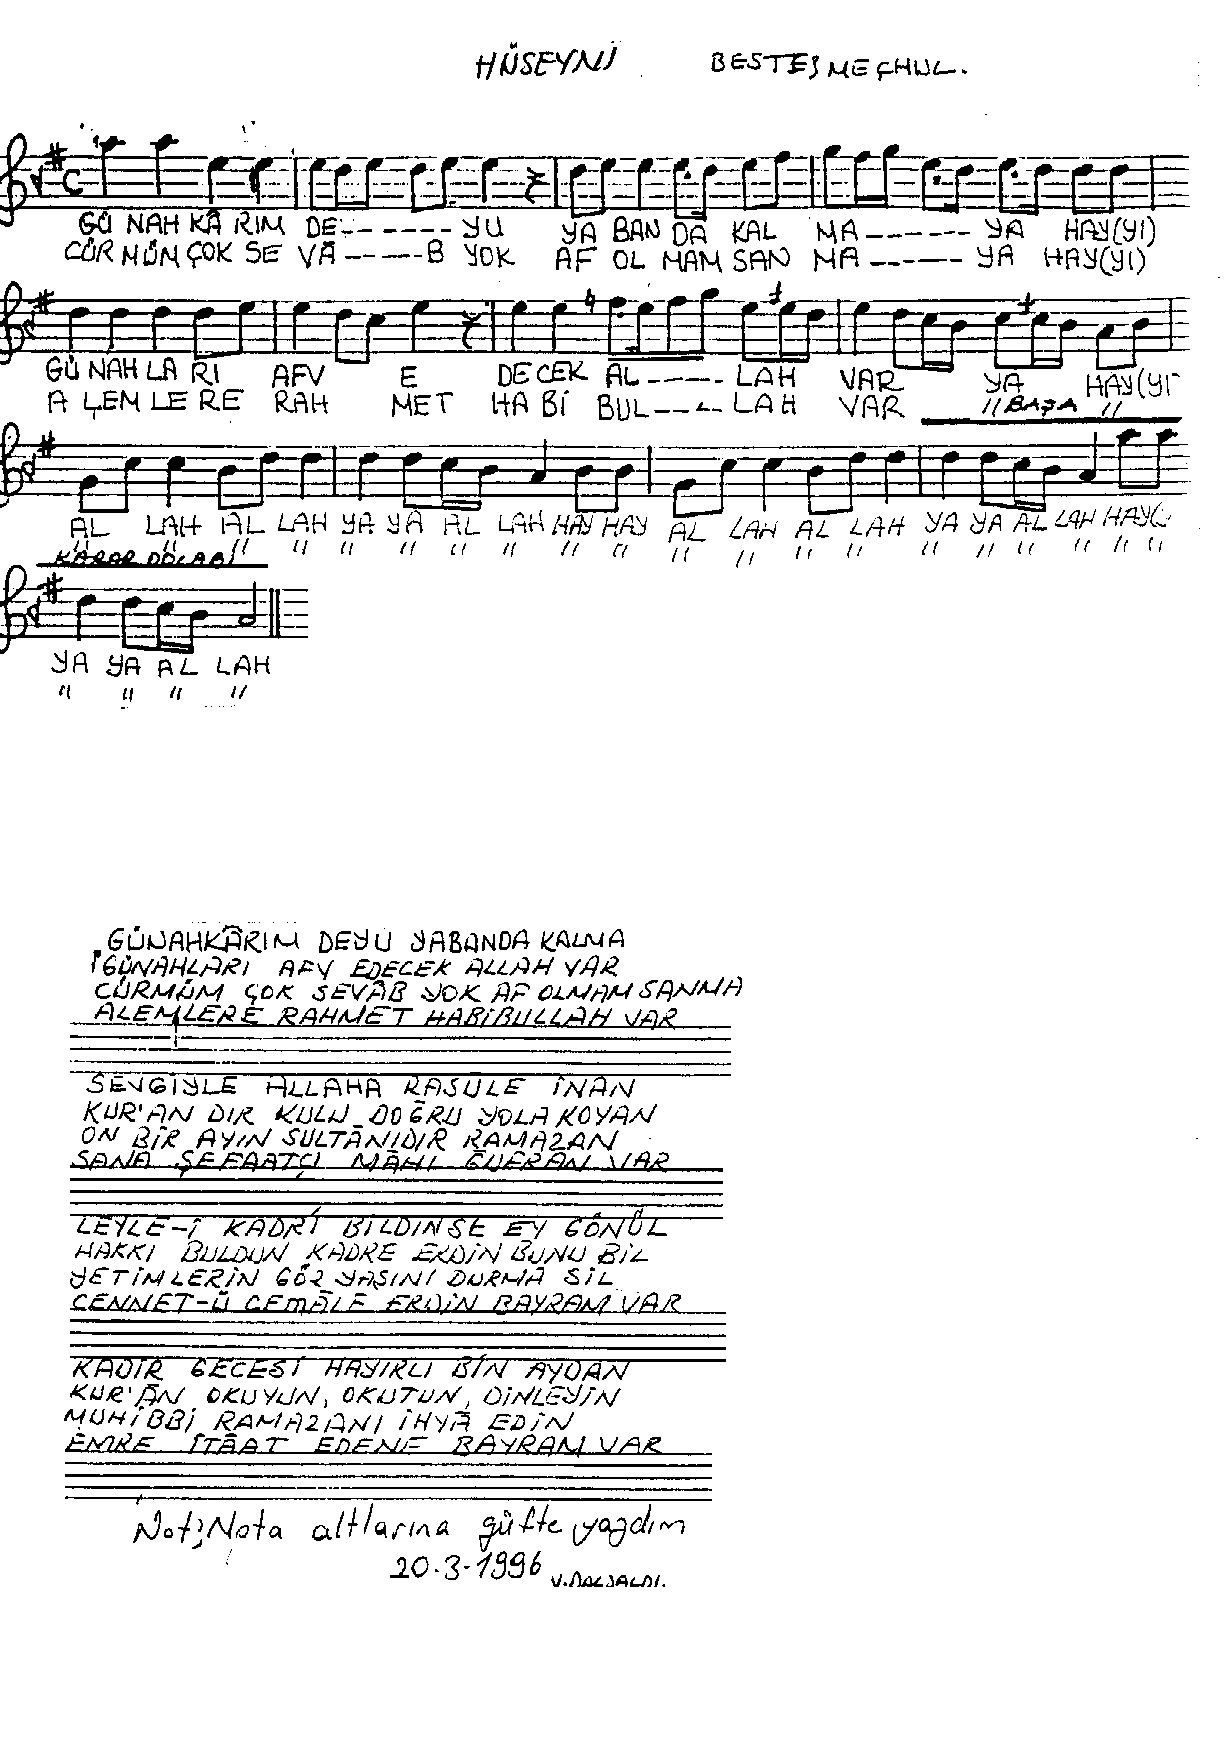 HÜSEYNİ BESTESİ MEÇHUL.
GÜ NAH KÂ RIM DE------- YU YA BAN DA KAL MA ------- YA HAY(YI)
CÜR MÜM ÇOK SE VÂ -----B YOK AF OL MAM SAN MA ------ YA HAY(YI)
GÜ NAH LA RI AFV E DE CEK AL----- LAH VAR YA HAY(YI
A LEM LE RE RAH MET HA Bİ BUL----- LAH VAR " BAŞA "
AL LAH AL LAH YA YA AL LAH HAY HAY AL LAH AL LAH YA YA AL LAH HAY(
" " " " " " " " " " " " " " " " " " " "
KARAR DOLABI
YA YA AL LAH
" " " "
GÜNAHKÂRIM DEYU YABANDA KALMA
GÜNAHLARI AFV EDECEK ALLAH VAR
CÜRMÜM ÇOK SEVÂB YOK AF OLMAM SANMA
ALEMLERE RAHMET HABİBULLAH VAR
SEVGİYLE ALLAHA RASULE İNAN
KUR'AN DIR KULU DOĞRU YOLA KOYAN
ON BİR AYIN SULTÂNIDIR RAMAZAN
SANA ŞEFAATÇI MÂHI GUFRÂN VAR
LEYLE-İ KADRİ BİLDİNSE EY GÖNÜL
HAKKI BULDUN KADRE ERDİN BUNU BİL
YETİMLERİN GÖZ YAŞINI DURMA SİL
CENNET-Ü CEMÂLE ERDİN BAYRAM VAR
KADİR GECESİ HAYIRLI BİN AYDAN
KUR'ÂN OKUYUN, OKUTUN, DİNLEYİN
MUHİBBİ RAMAZANI İHYÂ EDİN
EMRE İTÂAT EDENE BAYRAM VAR
Not; Nota altlarına güfte yazdım
20.3.1996